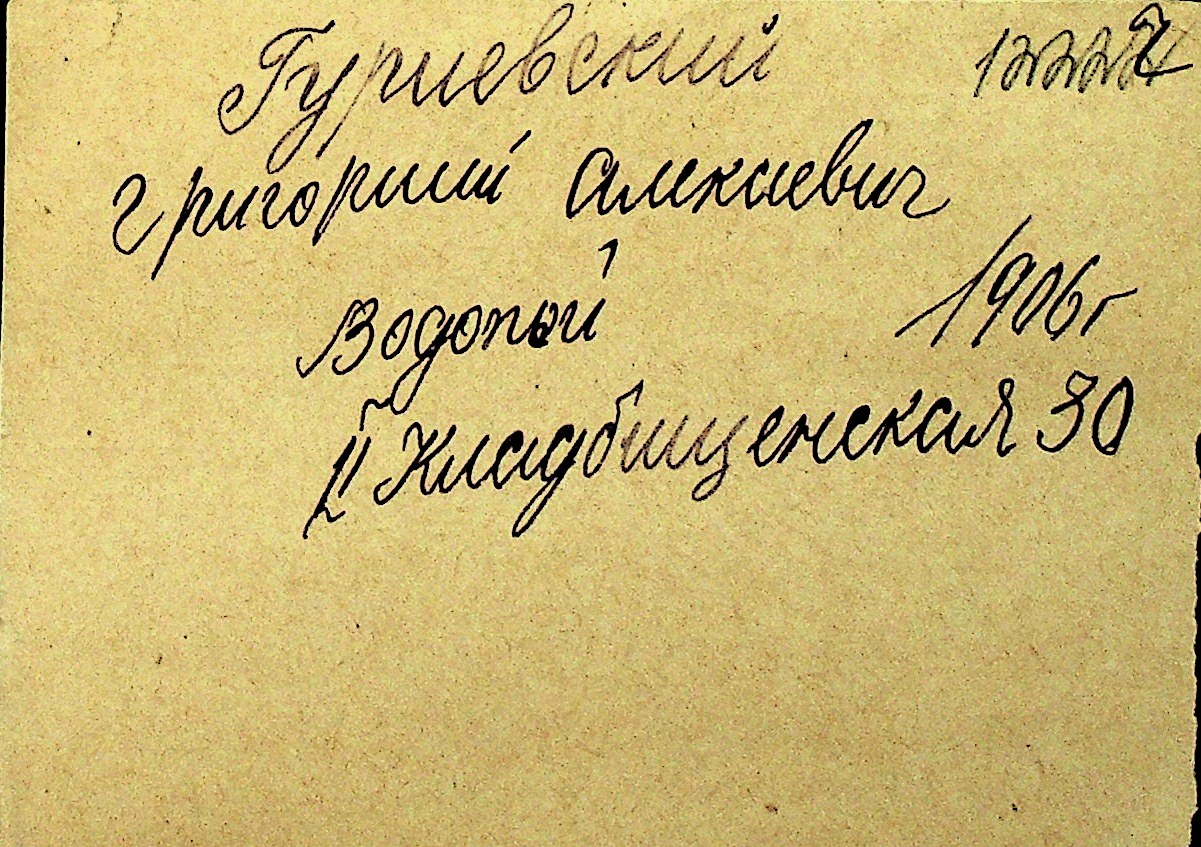 Гуриевский
григорий Алекиевич
Водопой 1906г
II Кладбищенская 30